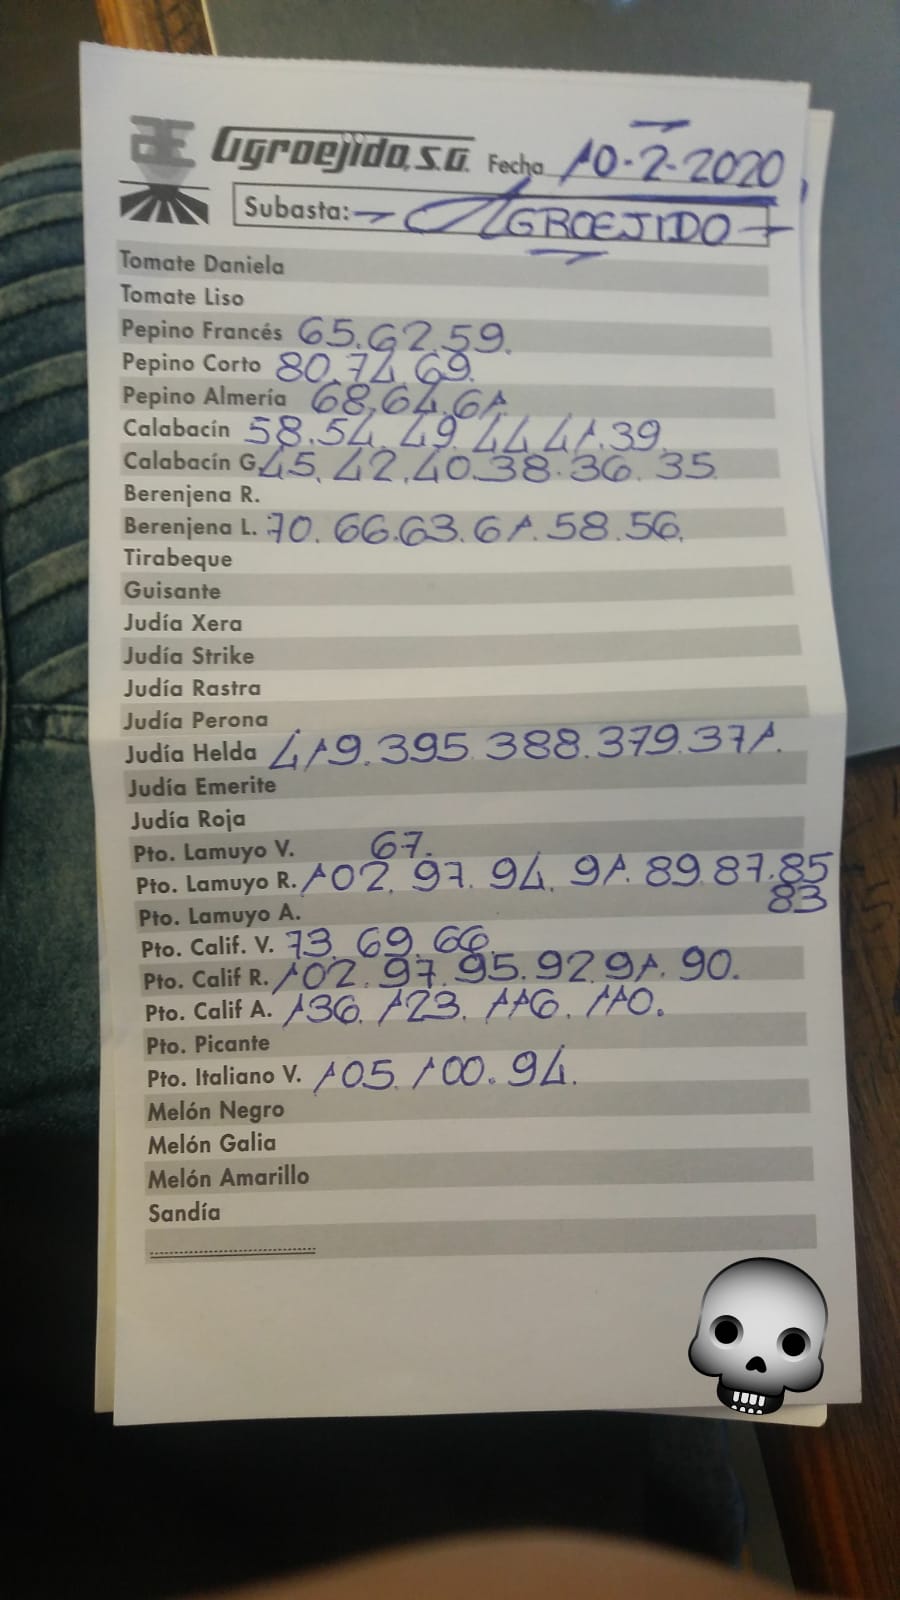 AE Agroejido, S.A. Fecha 10-2-2020
Subasta: - AGROEJIDO -
Tomate Daniela
Tomate Liso
Pepino Francés 65.62.59.
Pepino Corto 80.74.69.
Pepino Almería 68.64.61
Calabacín 58.54.49.44.41.39.
Calabacín G. 45.42.40.38.36.35.
Berenjena R.
Berenjena L. 70.66.63.61.58.56.
Tirabeque
Guisante
Judía Xera
Judía Strike
Judía Rastra
Judía Perona
Judía Helda 419.395.388.379.371.
Judía Emerite
Judía Roja
Pto. Lamuyo V. 67.
Pto. Lamuyo R. 102.97.94.91.89.87.85
83
Pto. Lamuyo A.
Pto. Calif. V. 73.69.66.
Pto. Calif R. 102.97.95.92.91.90.
Pto. Calif A. 136.123.116.110.
Pto. Picante
Pto. Italiano V. 105.100.94.
Melón Negro
Melón Galia
Melón Amarillo
Sandía